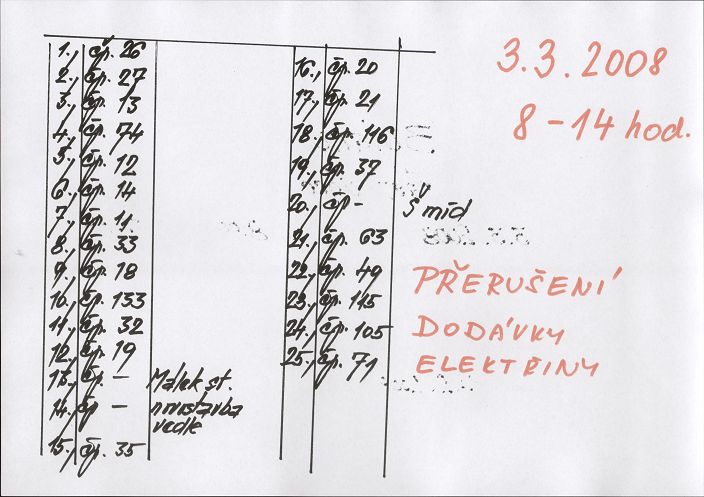 1., čp. 26
2., čp. 27
3., čp. 13
4., čp. 74
5., čp. 12
6., čp. 14
7., čp. 11
8., čp. 33
9., čp. 18
10., čp. 133
11., čp. 32
12., čp. 19
13., čp. - Málek st.
14., čp - novostavba
vedle
15., čp. 35
16., čp. 20
17., čp. 21
18., čp. 116
19., čp. 37
20., čp - Šmíd
21., čp. 63
22., čp. 49
23., čp. 145
24., čp. 105
25., čp. 71
3.3.2008
8-14 hod.
PŘERUŠENÍ
DODÁVKY
ELEKTŘINY